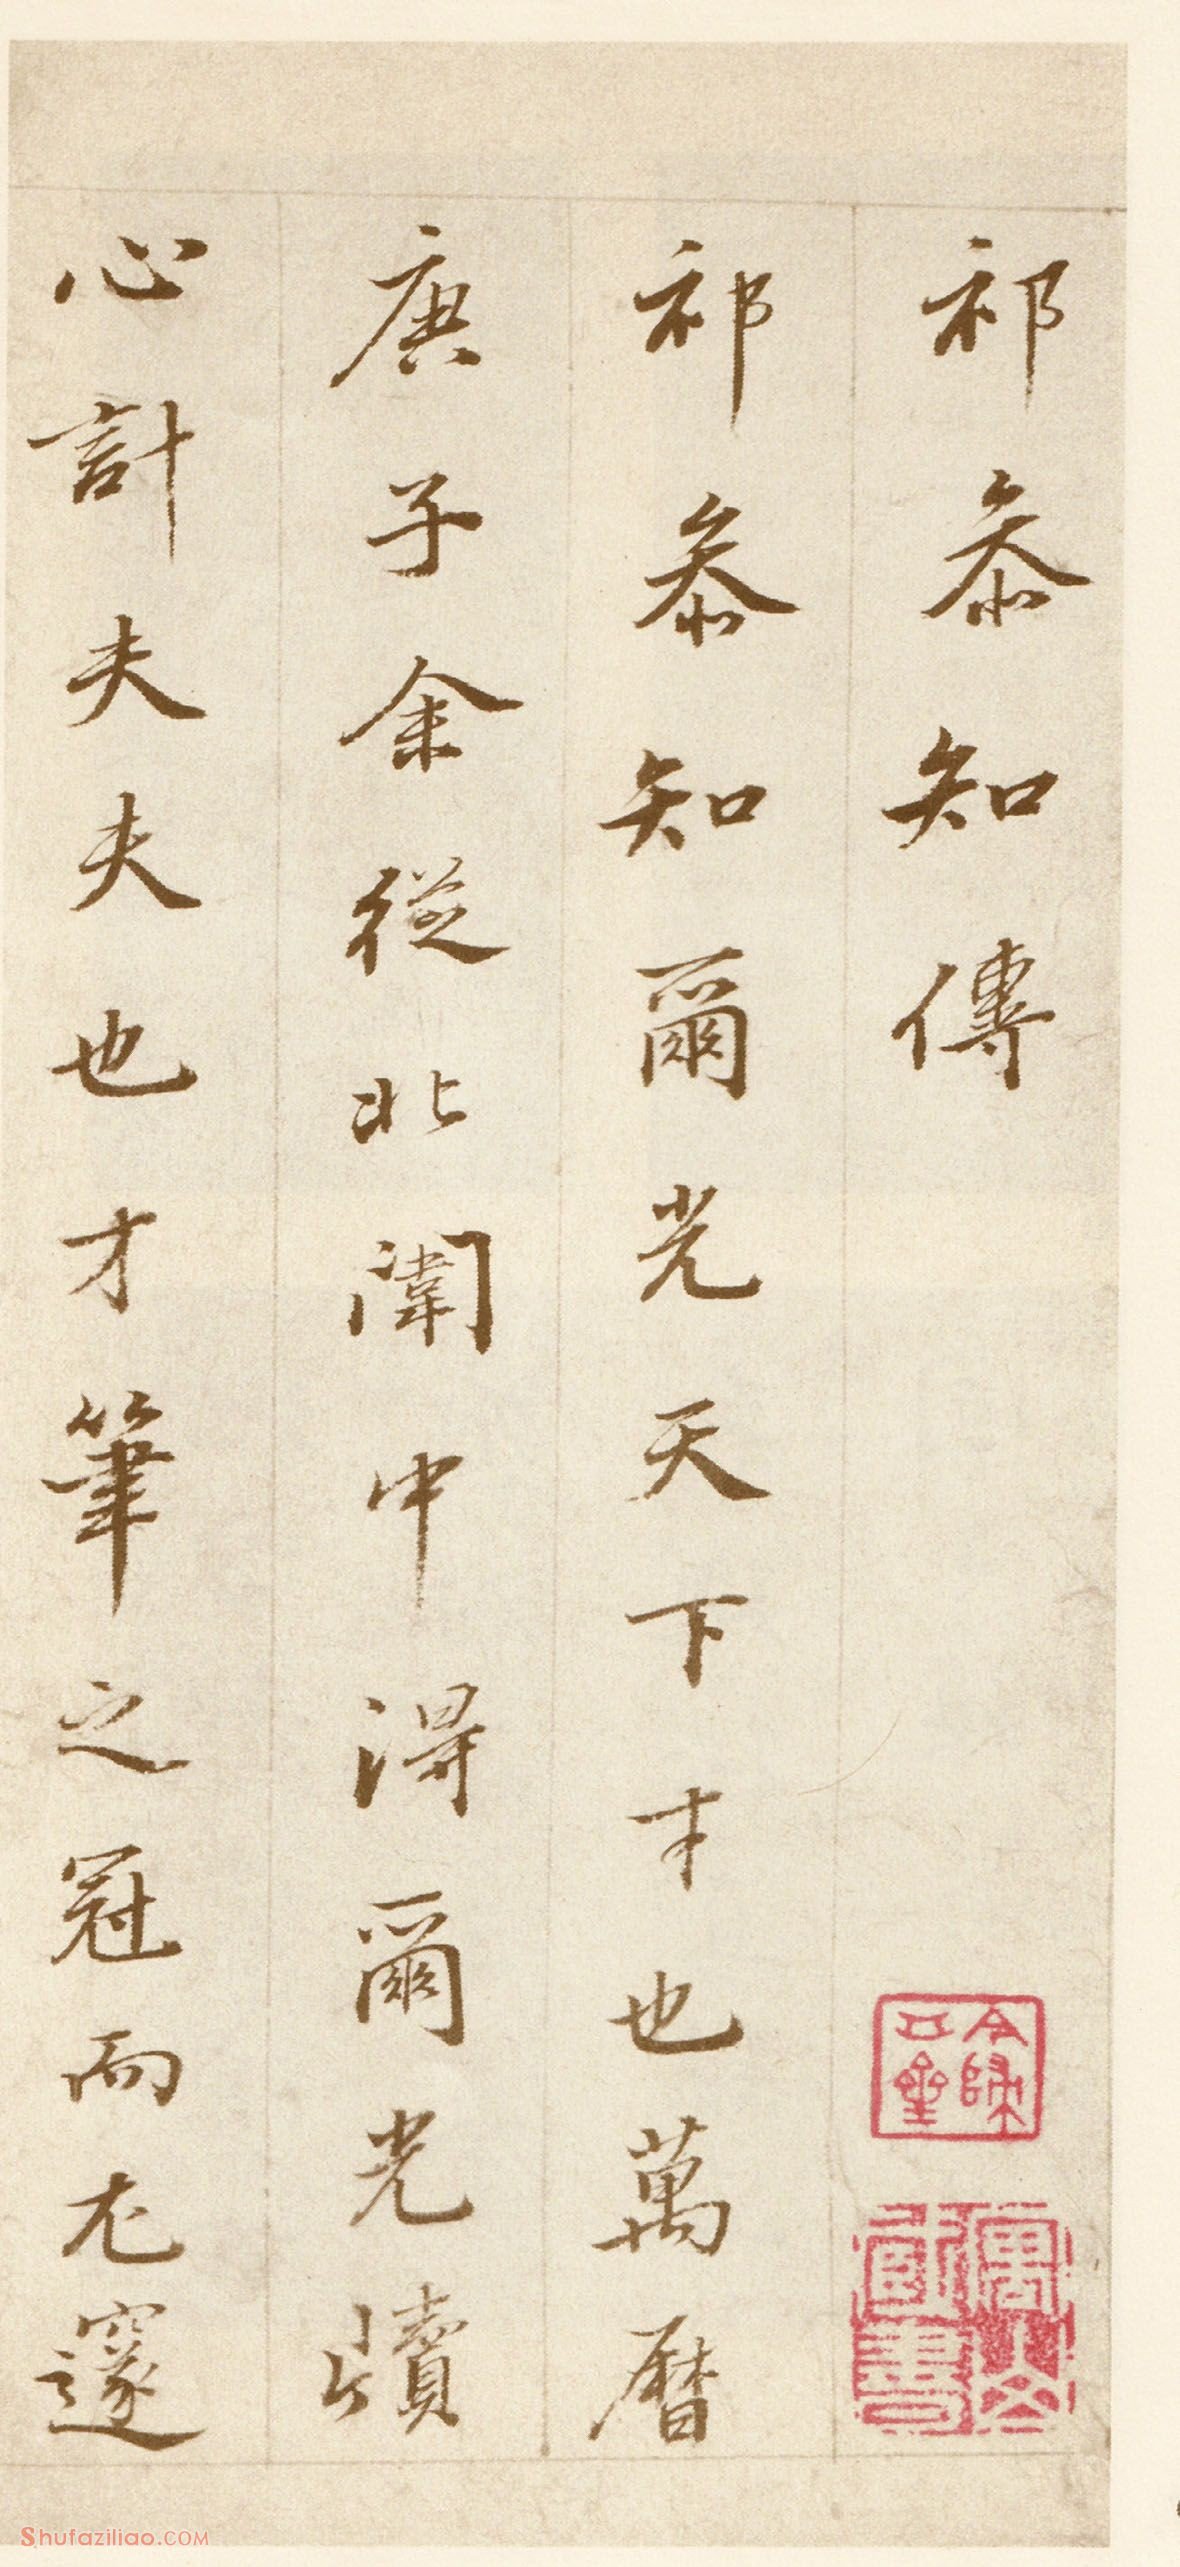 祁叅知傳
祁叅知爾光天下才也萬曆
庚子余從北闈中得爾光牘
心計夫夫也才筆之冠而尤邃
Shufaziliao.COM